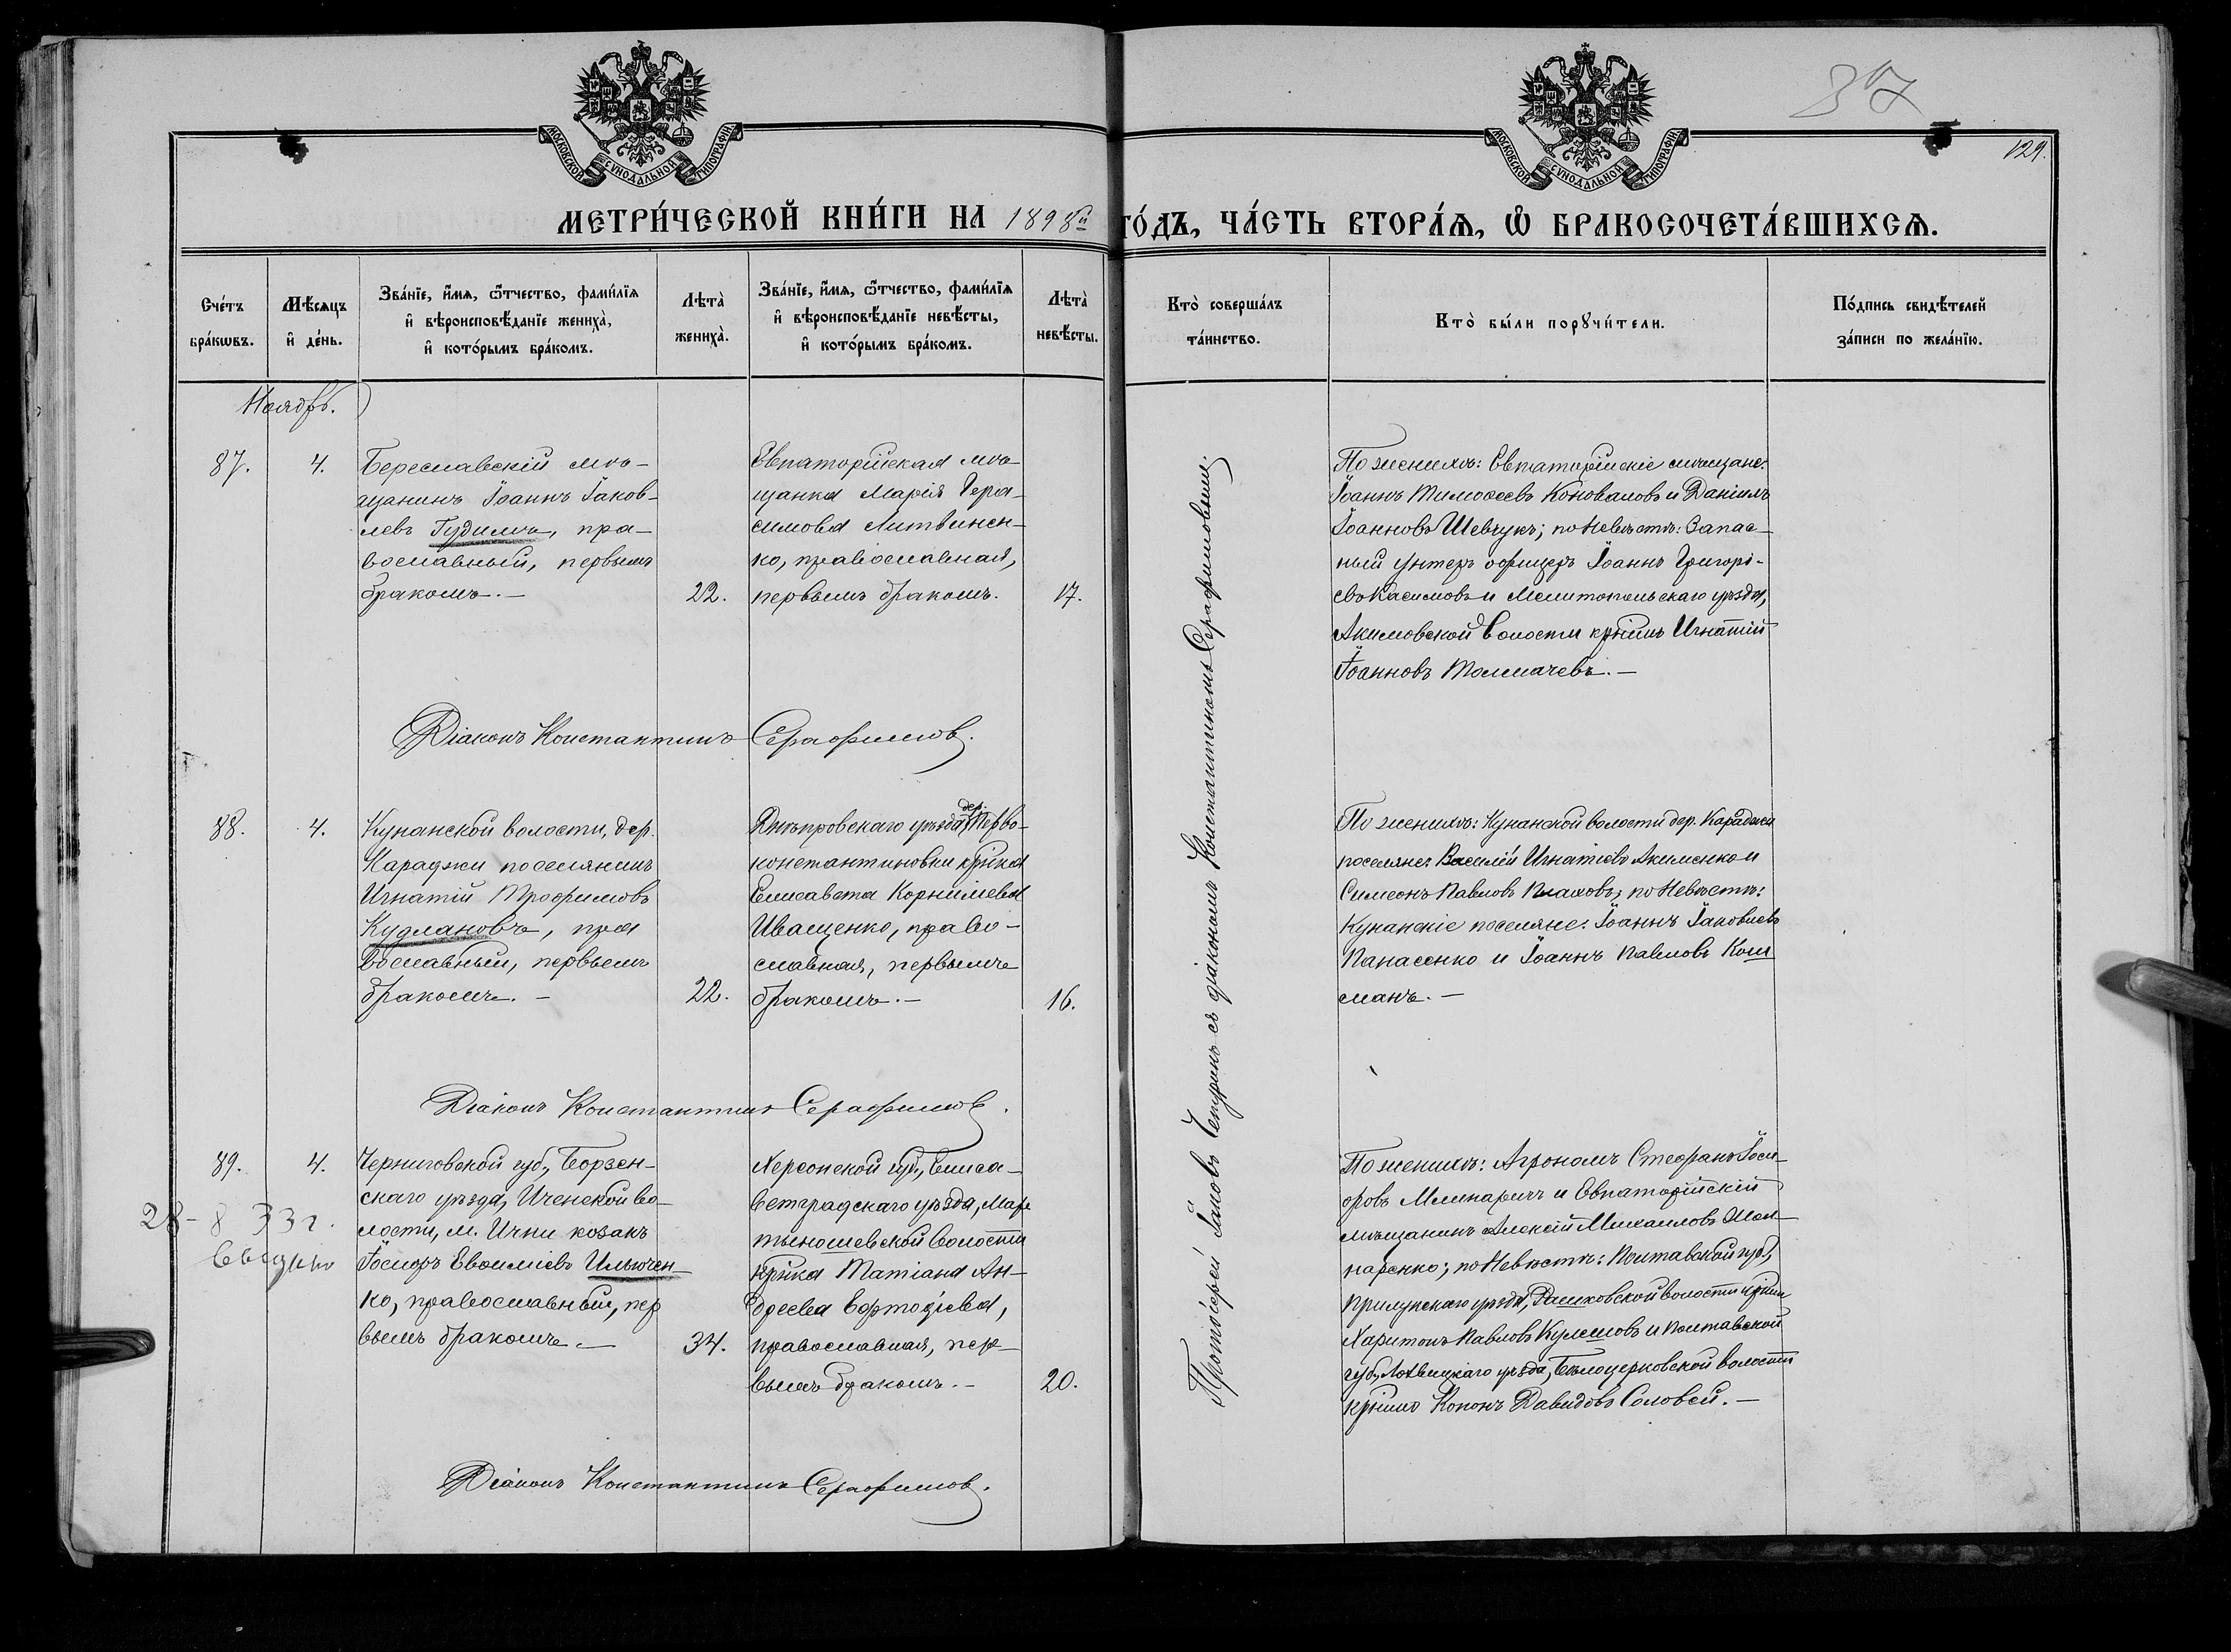 МОСКОВСКОЙ СѴНОДАЛЬНОЙ ТИПОГРАФІИ
МОСКОВСКОЙ СѴНОДАЛЬНОЙ ТИПОГРАФІИ
37
129.
МЕТРИ́ЧЕСКОЙ КНИ́ГИ НА 1898й ГО́ДЪ, ЧА́СТЬ ВТОРА́Ѧ, Ѡ҆ БРАКОСОЧЕТА́ВШИХСѦ.
Сче́тъ
бра́кѡвъ.
Мѣ́сяцъ
и҆ де́нь.
Зва́нїе, и҆́мя, ѻ҆́тчество, фами́лїя
и҆ вѣроисповѣ́данїе женихà,
и҆ кото́рымъ бра́комъ.
Лѣтà
женихà.
Зва́нїе, и҆́мя, ѻ҆́тчество, фами́лїя
и҆ вѣроисповѣ́данїе невѣ́сты,
и҆ кото́рымъ бра́комъ.
Лѣтà
невѣ́сты.
Ктò соверша́лъ
та́инство.
Ктò бы́ли порꙋчи́тели.
По́дпись свидѣ́телей
за́писи по жела́нїю.
Ноябрь.
87.
4.
Береславскій мѣ-
щанинъ Іоаннъ Іаков-
левъ Гудимъ, пра-
вославный, первымъ
бракомъ.—
22.
Евпаторійская мѣ-
щанка Марія Гера-
симова Литвинен-
ко, православная,
первымъ бракомъ.
17.
По женихѣ: Евпаторійскіе мѣщане:
Іоаннъ Тимоѳеевъ Коноваловъ и Даніилъ
Іоанновъ Шевчукъ; по невѣстѣ: Запас-
ный унтеръ офицеръ Іоаннъ Григорі-
евъ Касимовъ и Мелитопольскаго уѣзда,
Акимовской волости кр̃нинъ Игнатій
Іоанновъ Толмачевъ.—
Діаконъ Константинъ Серафимовъ.
88.
4.
Кунанской волости, дер.
Караджи поселянинъ
Игнатій Трофимовъ
Кудлановъ, пра
вославный, первымъ
бракомъ.—
22.
Днѣпровскаго уѣзда, дер. Перво-
константиновки кр̃нка
Елисавета Корниліева
Иващенко, право-
славная, первымъ
бракомъ.—
16.
По женихѣ: Кунанской волости дер. Караджи
поселяне: Василій Игнатіевъ Акименко и
Симеонъ Павловъ Плаховъ; по невѣстѣ:
Кунанскіе поселяне: Іоаннъ Іаковлевъ
Панасенко и Іоаннъ Павловъ Кош
манъ.—
Діаконъ Константинъ Серафимовъ.
89.
4.
Черниговской губ., Борзен-
скаго уѣзда, Иченской во-
лости, м. Ични козакъ
Іосифъ Евѳиміевъ Ильючен-
ко, православный, пер
вымъ бракомъ.—
34.
28-8 33 г.
выдано
Херсонской губ., Елиса-
ветградскаго уѣзда, Мар
тыношевской волости
кр̃нка Татіана Ан-
дреева Бортодіева,
православная, пер-
вымъ бракомъ.—
20.
По женихѣ: Агрономъ Стефанъ Іоси-
фовъ Млинаричъ и Евпаторійскій
мѣщанинъ Алексій Михаиловъ Шап-
паренко; по невѣстѣ: Полтавской губ.,
Прилукскаго уѣзда, Дашковской волости кр̃нинъ
Харитонъ Павловъ Кулешовъ и Полтавской
губ., Лохвицкаго уѣзда, Бѣлоцерковской волости
кр̃нинъ Кононъ Давидовъ Соловей.—
Діаконъ Константинъ Серафимовъ.
Протоіерей Іаковъ Чепуринъ съ діакономъ Константиномъ Серафимовымъ.